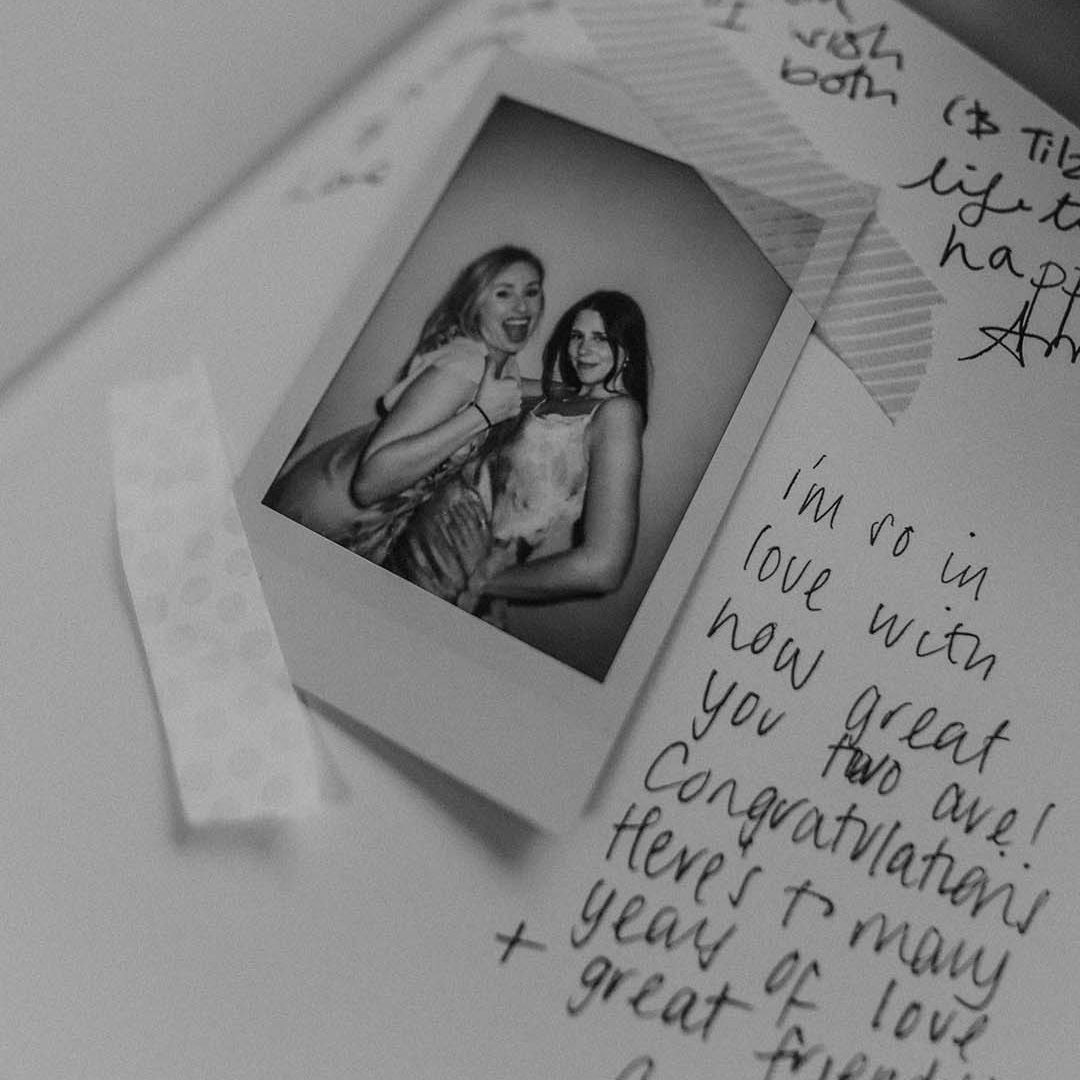 I wish
both
life
i'm so in
love with
how great
you two are!
Congratulations
Here's to many
years of love
+ great